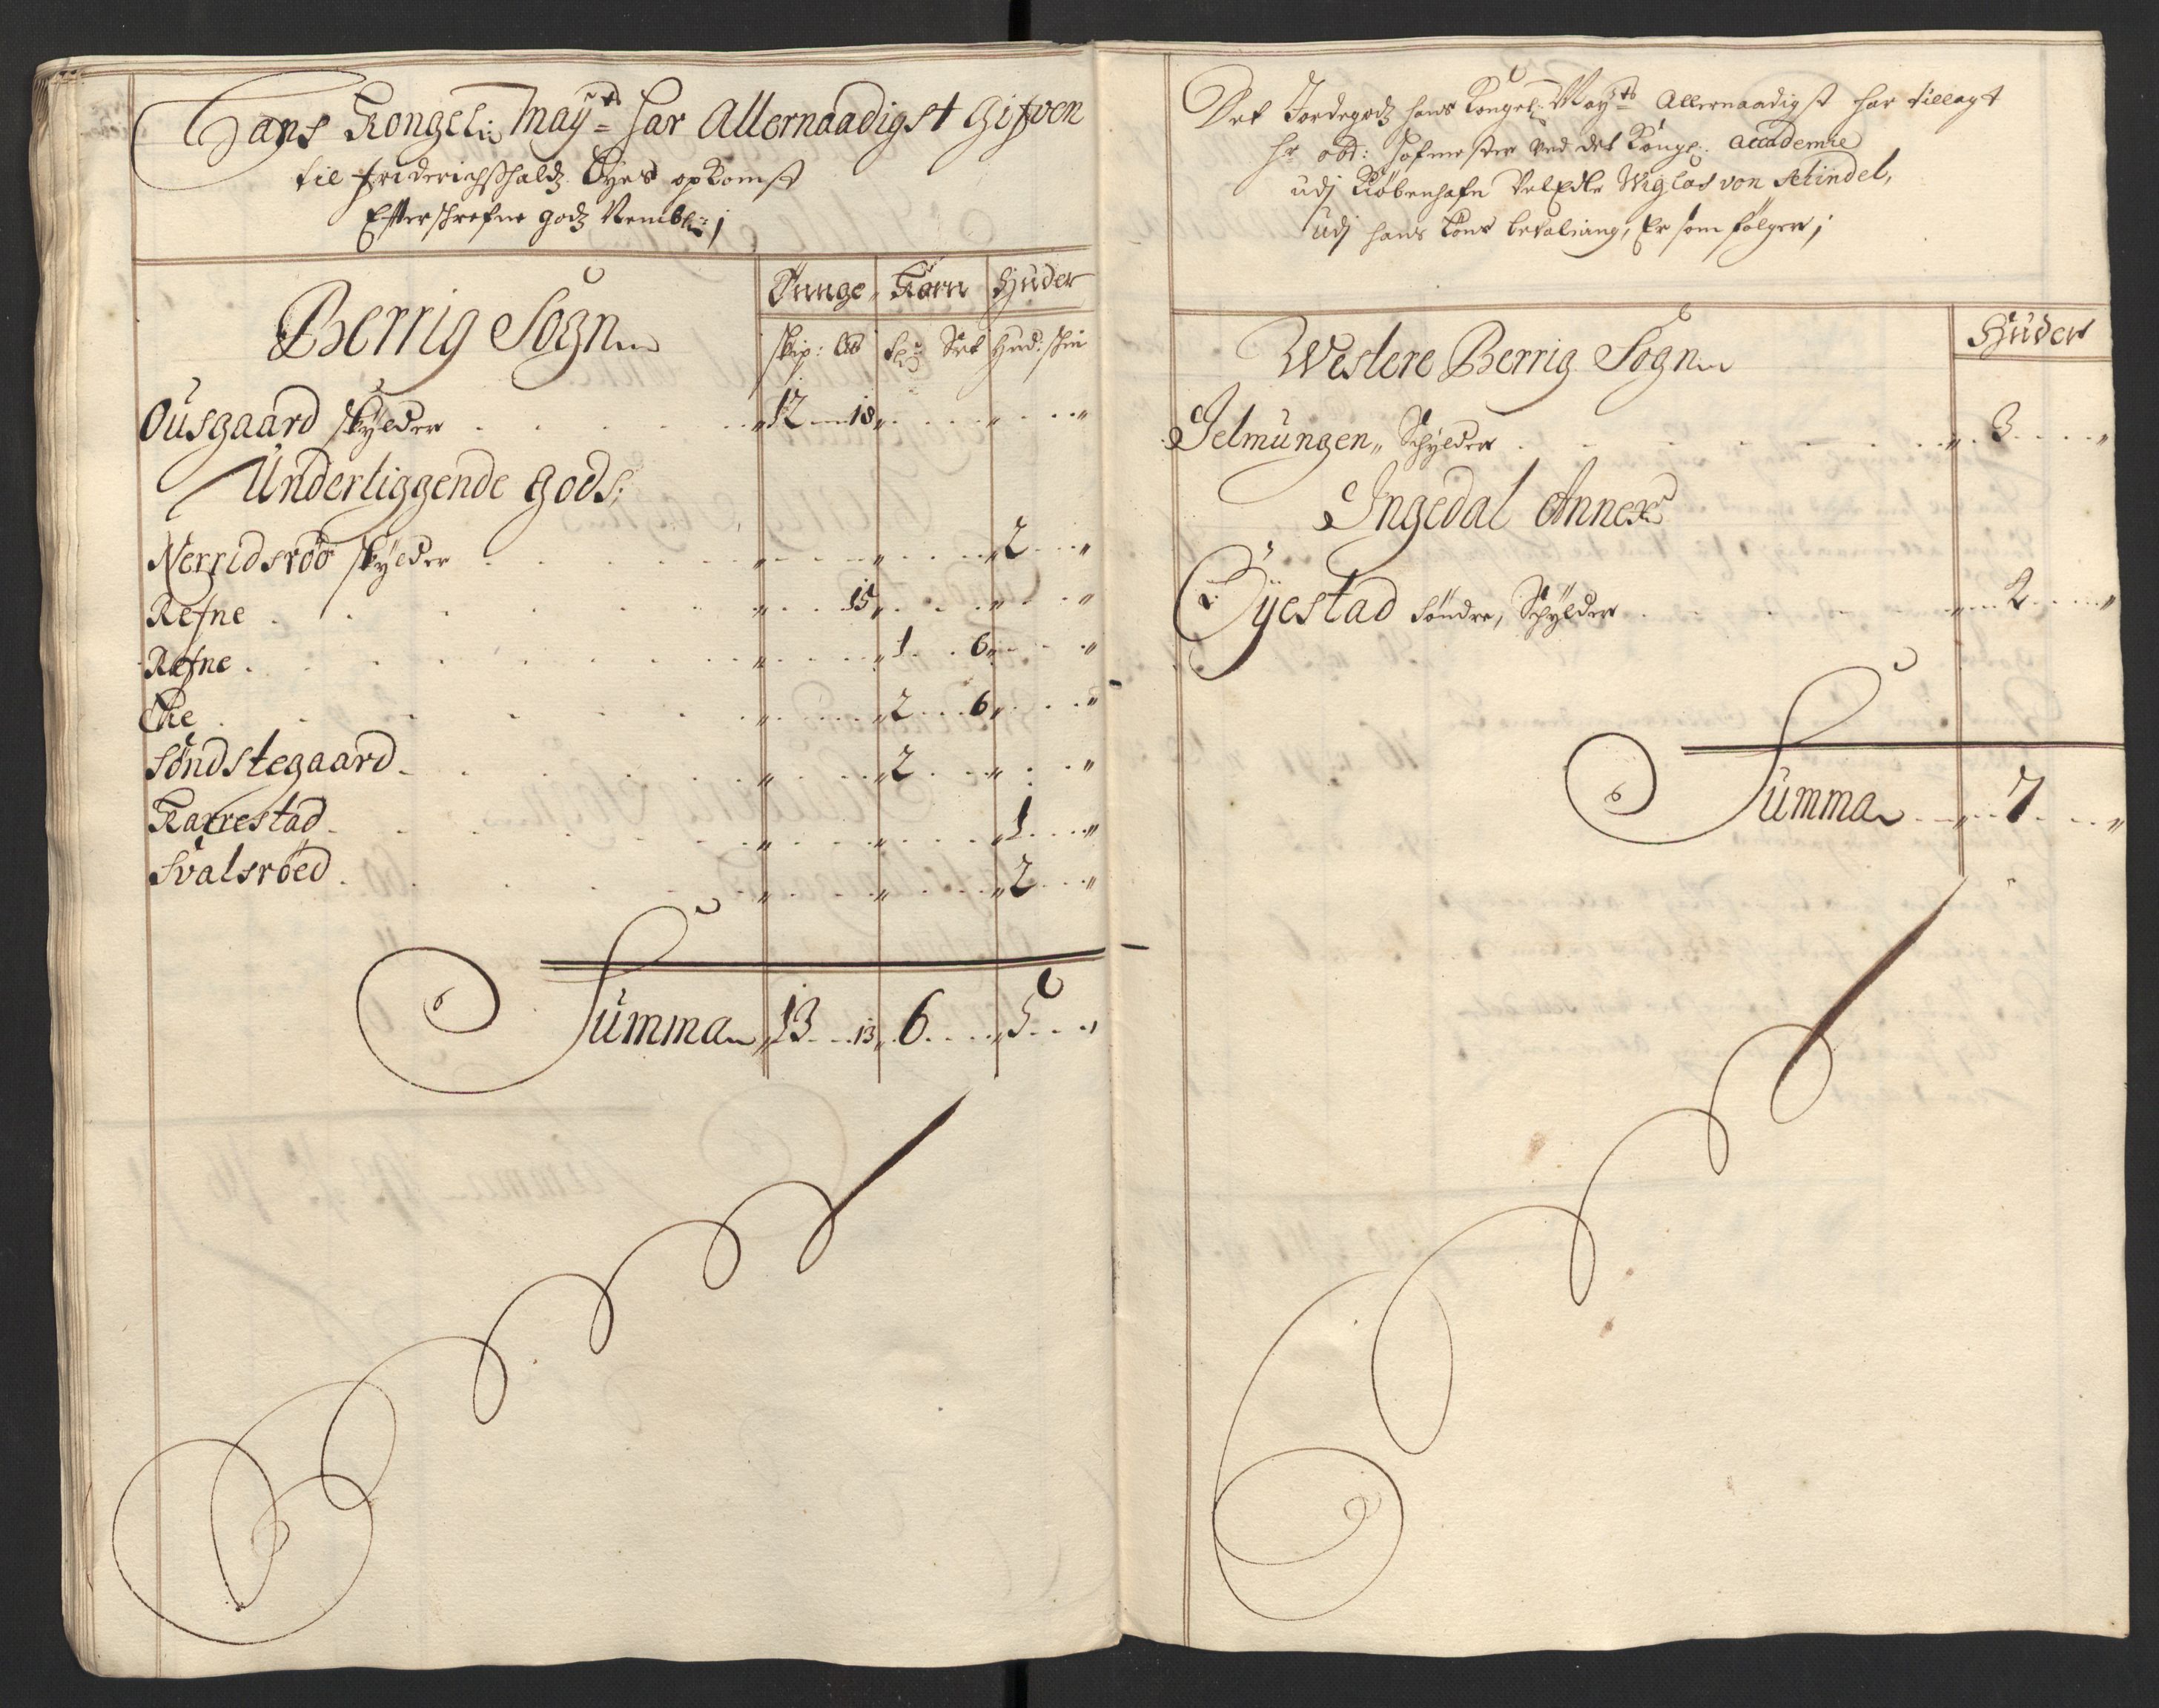 Hans Kongel: May:ts har Allernaadigst Gifven
til Friderichshaldz Byes opkomst
Effterschrefne godz Nembl:
Berrig Sogn
Tunge Korn Huder
skip: lb Td Set Hud: skin
Ousgaard skylder 12 18
Underliggende gods:
Nerridsröö skylder 2
Refne 15
Refne 1 6
Ehe 2 6
Söndstegaard 2
Karrestad 1
Svalsröed 2
Summa 13 13 6 5
Det Jordegodz hans Kongel: May:ts Allernaadigst har tillagt
hr obr: Hofmester ved det Kongl. Accademie
udj Kiöbenhafn VelEdle Wiglas von Schindel,
udj hans löns betaling, Er som fölger;
Westere Berrig Sogn
Huder
Jelmungen Schylder 3
Ingedal Annex
Byestad söndre, Schylder 2
Summa 7